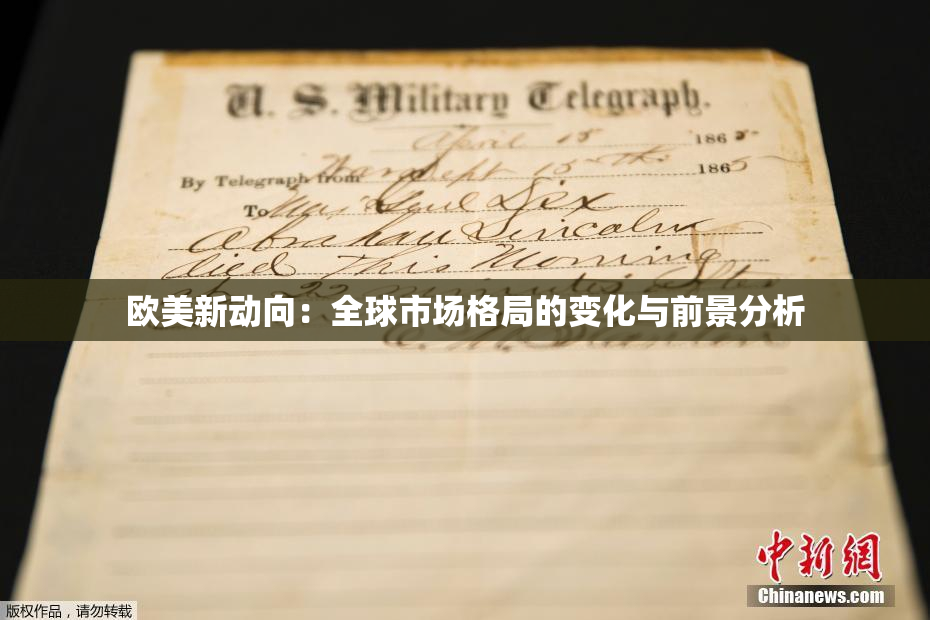 U. S. Military Telegraph.
April 15 1865
By Telegraph from War Dept 15th 1865
To Maj Genl Dix
Abraham Lincoln
died This Morning
at 22 minutes after
欧美新动向：全球市场格局的变化与前景分析
E. M. Stanton
中新網
Chinanews.com
版权作品，请勿转载